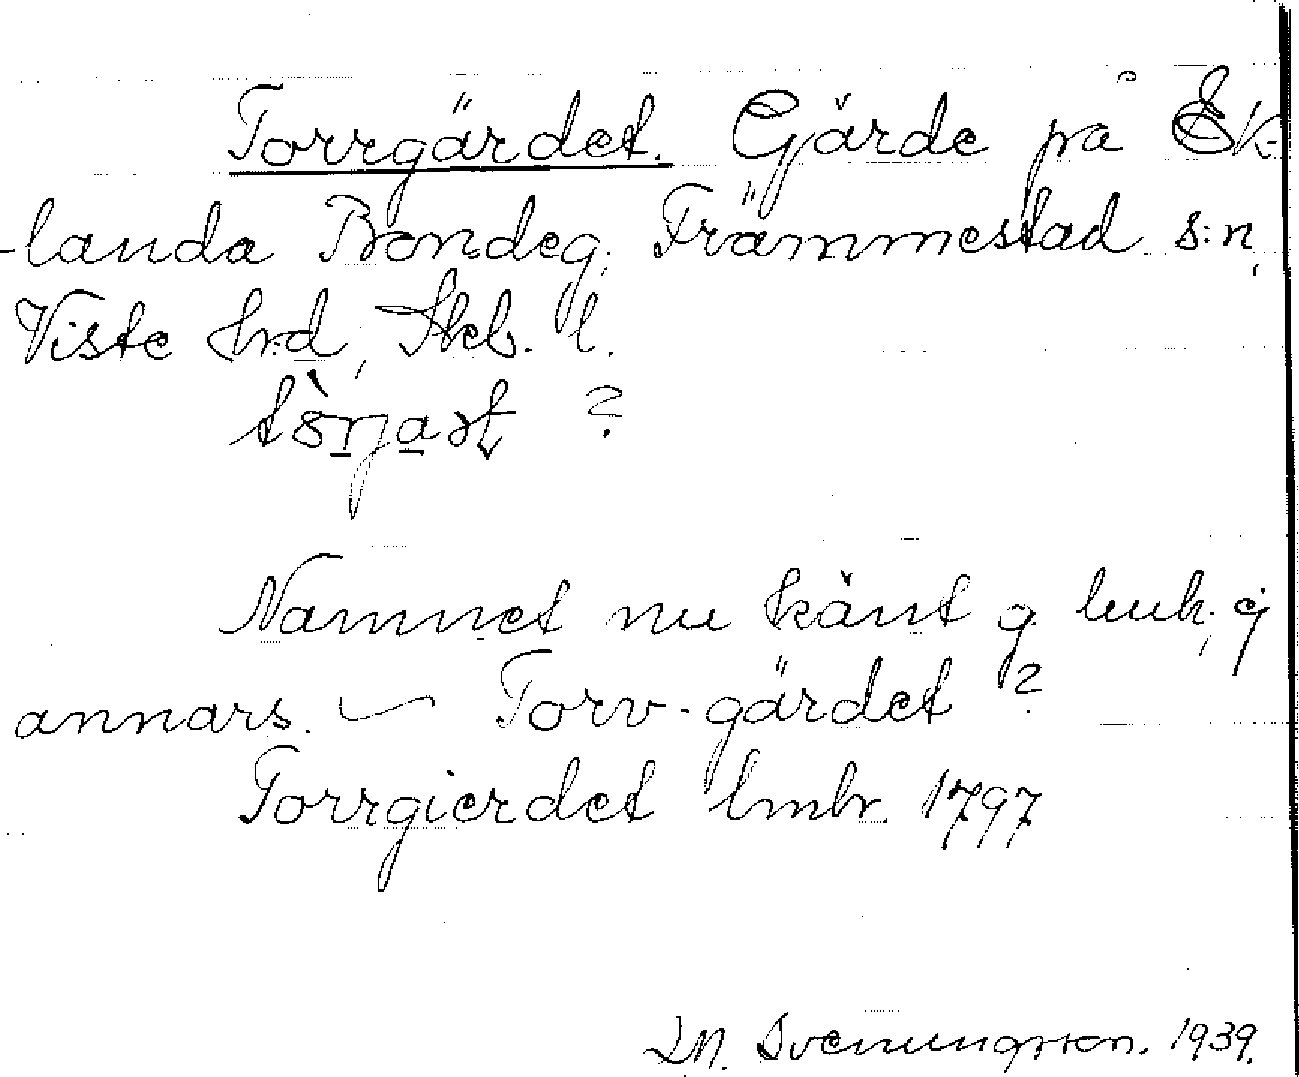 Torrgärdet. Gärde på Ek-
landa Bondeg. Främmestad s:n,
Viste hrd, Skb. l.
Namnet nu känt g. huk., ej
annars. — Torv-gärdet?
Torrgierdet lmbr. 1797
Svenungsson. 1939.